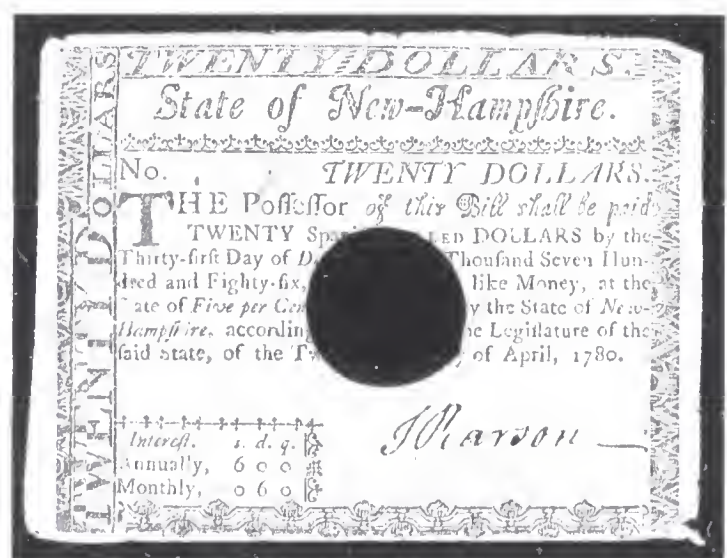 TWENTY DOLLARS
TWENTY DOLLARS.
State of New-Hampſhire.
No. TWENTY DOLLARS.
THE Poſſeſſor of this Bill shall be paid
TWENTY DOLLARS by the
Thirty-firſt Day of Thouſand Seven Hun-
dred and Eighty-ſix, like Money, at the
of Five per Cen y the State of New-
Hampſhire, according e Legiſlature of the
ſaid State, of the Tw of April, 1780.
Intereſt. s. d. q.
Annually, 6 0 0
Monthly, 0 6 0